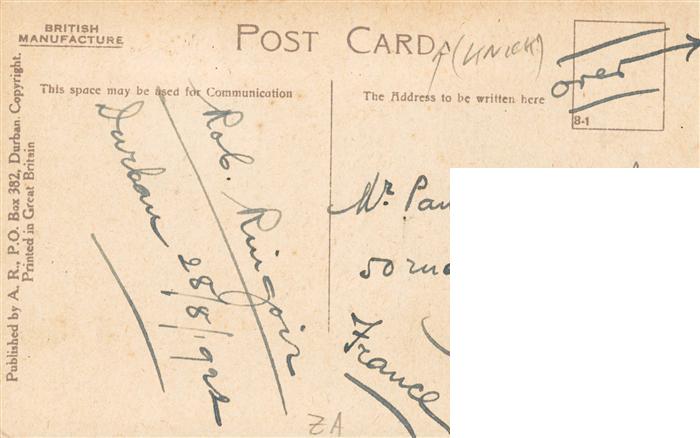 BRITISH
MANUFACTURE
POST CARD
(KNICK)
over
This space may be used for Communication
The Address to be written here
8-1
Published by A. R., P.O. Box 382, Durban. Copyright.
Printed in Great Britain
Rob. Ringoir
Durban 28/8/1921
Mr. Pau
50 rue
France
ZA